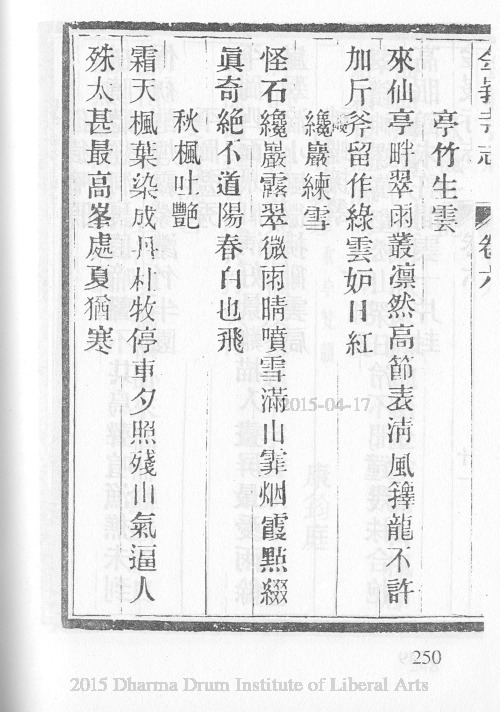 寺志 卷六
亭竹生雲
來仙亭畔翠雨叢凛然高節表淸風籜龍不許
加斤斧留作綠雲妒日紅
纔巖練雪
怪石纔巖露翠微雨晴噴雪滿山霏烟霞點綴
眞奇絶不道陽春白也飛
秋楓吐艷
霜天楓葉染成丹村牧停車夕照殘山氣逼人
殊太甚最高峯處夏猶寒
2015-04-17
250
2015 Dharma Drum Institute of Liberal Arts